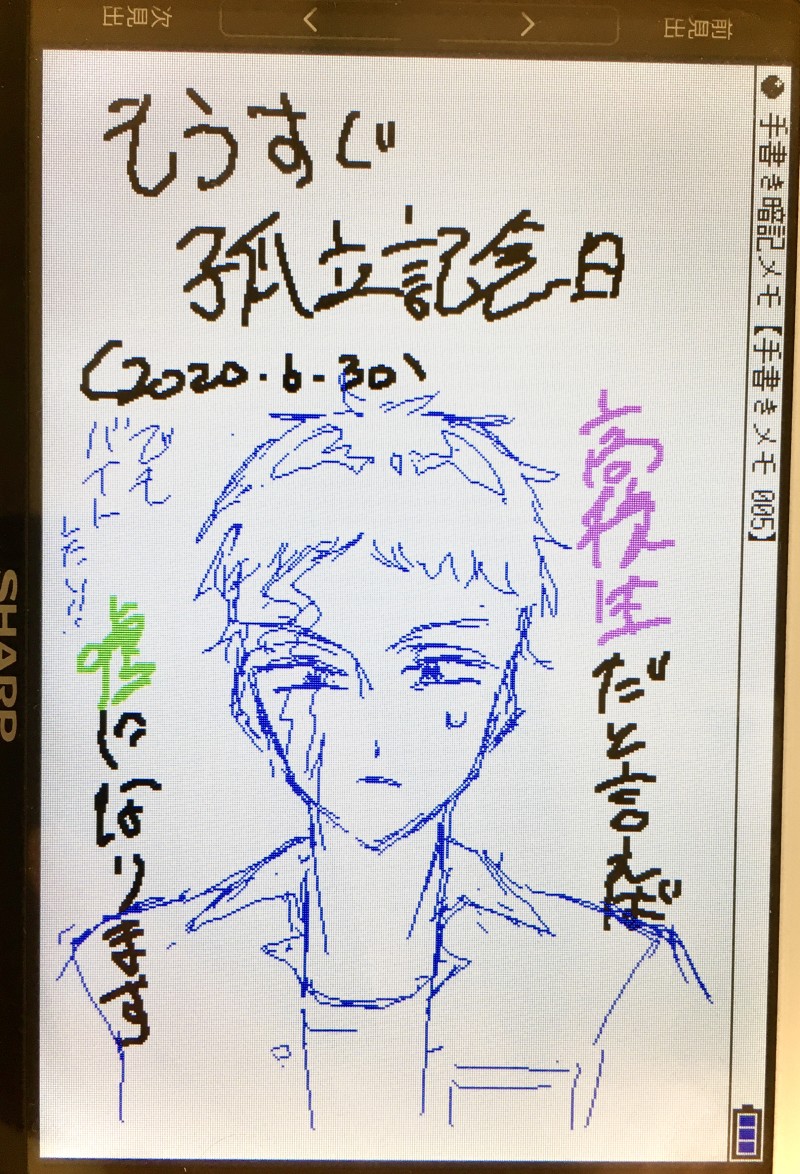 次見出
前見出
手書き暗記メモ【手書きメモ 005】
もうすぐ
孤立記念日
(2020.6.30)
高校生だと言えば
嘘になります
でも
バイト
SHARP